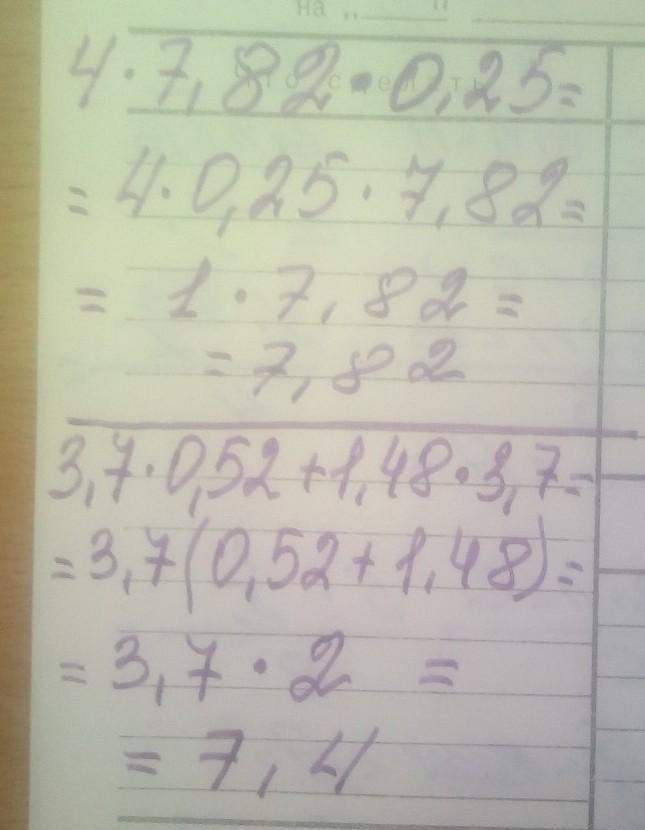 на „ "
4·7,82·0,25=
=4·0,25·7,82=
= 1·7,82=
=7,82
3,7·0,52+1,48·3,7=
=3,7(0,52+1,48)=
=3,7·2 =
=7,4